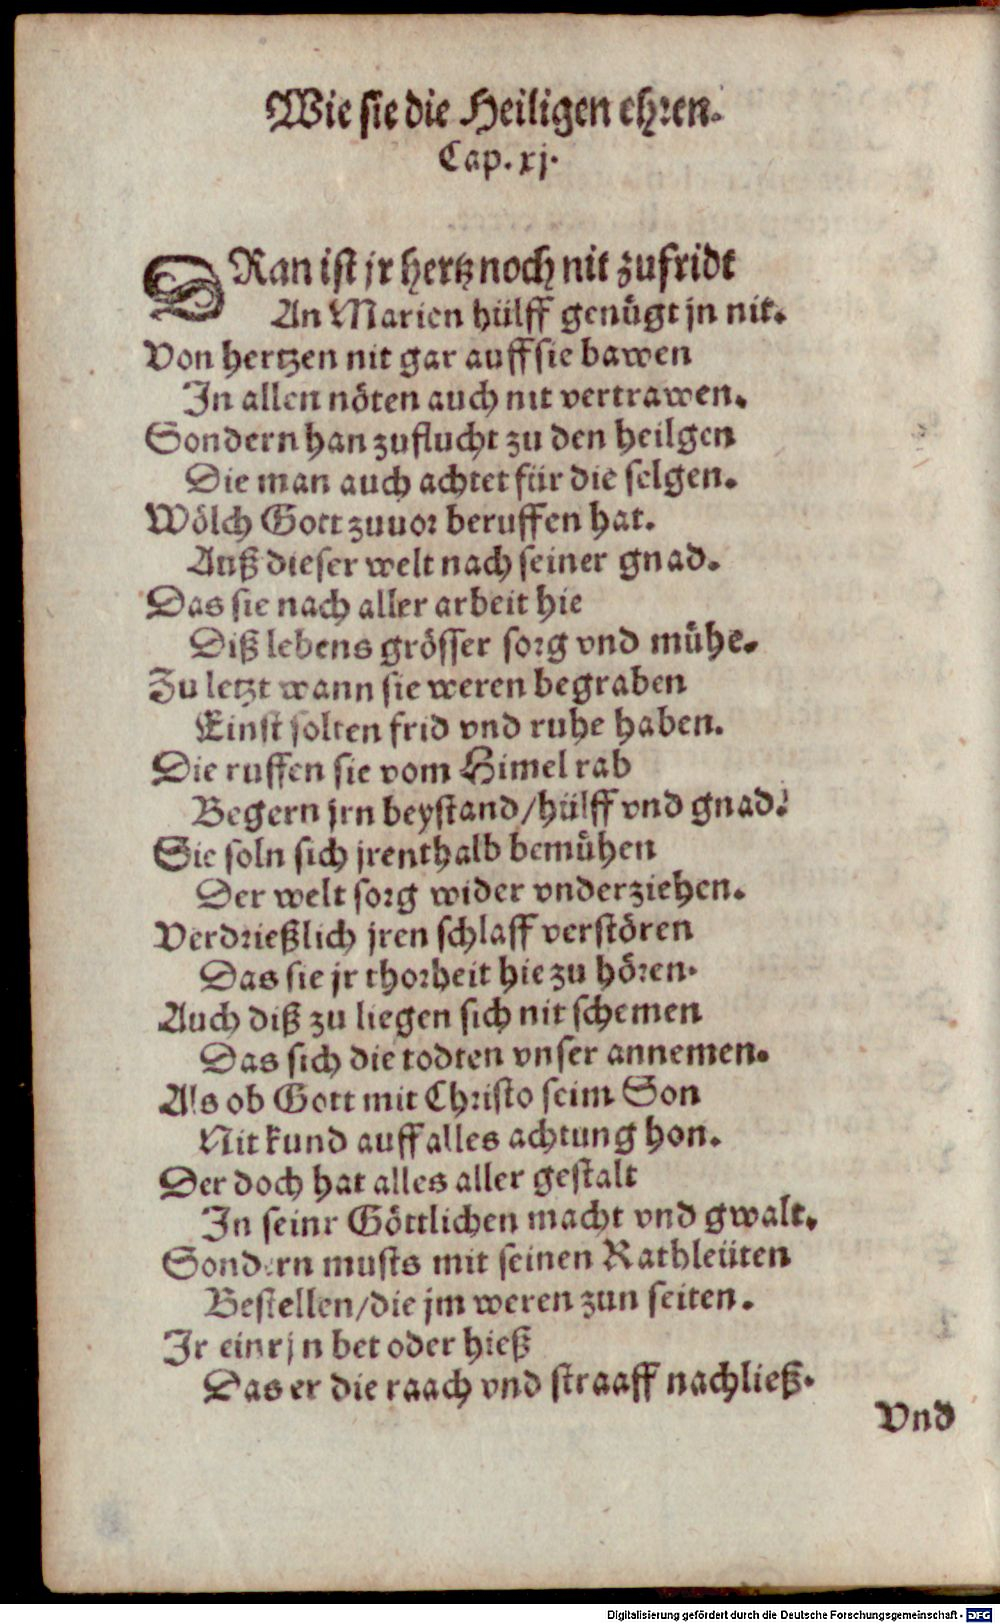 Wie sie die Heiligen ehren.
Cap. xj.
DRan ist jr hertz noch nit zufridt
An Marien hülff genügt jn nit.
Von hertzen nit gar auff sie bawen
In allen nöten auch nit vertrawen.
Sondern han zuflucht zu den heilgen
Die man auch achtet für die selgen.
Wölch Gott zuuor beruffen hat.
Auß dieser welt nach seiner gnad.
Das sie nach aller arbeit hie
Diß lebens grösser sorg vnd mühe.
Zu letzt wann sie weren begraben
Einst solten frid vnd ruhe haben.
Die ruffen sie vom Himel rab
Begern jrn beystand/hülff vnd gnad.
Sie soln sich jrenthalb bemühen
Der welt sorg wider vnderziehen.
Verdrießlich jren schlaff verstören
Das sie jr thorheit hie zu hören.
Auch diß zu liegen sich nit schemen
Das sich die todten vnser annemen.
Als ob Gott mit Christo seim Son
Nit kund auff alles achtung hon.
Der doch hat alles aller gestalt
In seinr Göttlichen macht vnd gwalt.
Sondern musts mit seinen Rathleüten
Bestellen/die jm weren zun seiten.
Ir einr jn bet oder hieß
Das er die raach vnd straaff nachließ.
Vnd
Digitalisierung gefördert durch die Deutsche Forschungsgemeinschaft - DFG